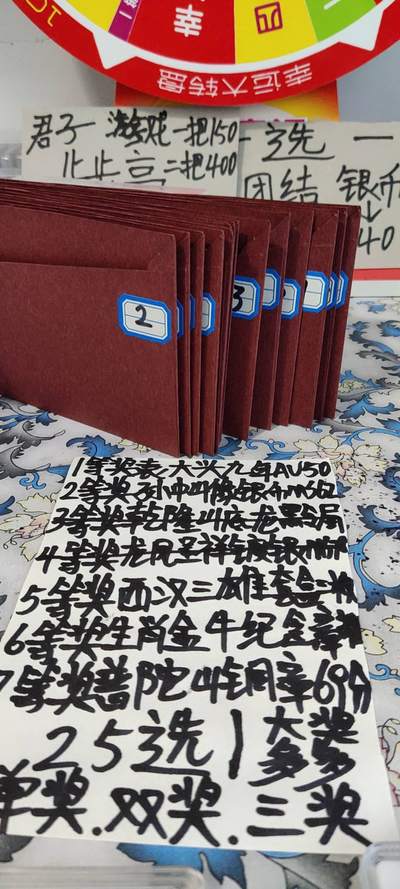 幸
四
幸运大转盘
君子 游戏一把150
止止言二把400
一选一
团结 银币
40
2
3
1等奖袁大头九年AU50
2等奖孙中山像银币
3等奖乾隆
4等奖龙凤呈祥镀银
5等奖西汉三雄套
6等奖生肖金牛纪念章
7等奖普陀山铜章69分
25选1大奖
多多
单奖.双奖.三奖